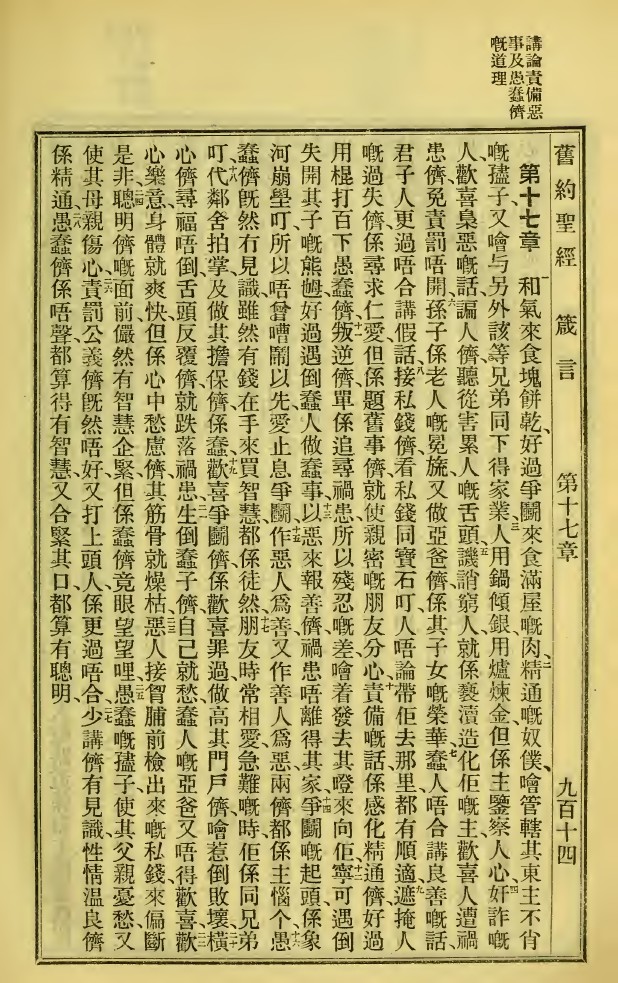 講論責備惡
事及愚蠢儕
嘅道理
舊約聖經 箴言 第十七章 九百十四
第十七章 一和氣來食塊餅乾、好過爭鬭來食滿屋嘅肉、二精通嘅奴僕、噲管轄其東主不肖
嘅㜽子、又噲与另外該等兄弟同下得家業、三人用鍋傾銀、用爐煉金、但係主鑒察人心、四奸詐嘅
人、歡喜梟惡嘅話、諞人儕聽從害累人嘅舌頭、五譏誚窮人、就係褻瀆造化佢嘅主、歡喜人遭禍
患儕、免責罰唔開、六孫子係老人嘅冕旒、又做亞爸儕、係其子女嘅榮華、七蠢人唔合講良善嘅話、
君子人更過唔合講假話、八接私錢儕、看私錢同寶石叮人、唔論帶佢去那里、都有順適、九遮掩人
嘅過失儕、係尋求仁愛、但係題舊事儕、就使親密嘅朋友分心、十責備嘅話係感化精通儕、好過
用棍打百下愚蠢儕、十一叛逆儕單係追尋禍患、所以殘忍嘅差噲着發去其噔來向佢、十二寧可遇倒
失開其子嘅熊𡜵、好過遇倒蠢人做蠢事、十三以惡來報善儕、禍患唔離得其家、十四爭鬭嘅起頭、係象
河崩壆叮、所以唔曾嘈鬧以先、愛止息爭鬭、十五作惡人爲善、又作善人爲惡、兩儕都係主惱个、十六愚
蠢儕既然冇見識、雖然有錢在手來買智慧、都係徒然、十七朋友時常相愛、急難嘅時、佢係同兄弟
叮、十八代鄰舍拍掌、及做其擔保儕、係蠢、十九歡喜爭鬭儕、係歡喜罪過、做高其門戶儕、噲惹倒敗壞、二十橫
心儕尋福唔倒、舌頭反覆儕、就跌落禍患、二一生倒蠢子儕、自己就愁、蠢人嘅亞爸、又唔得歡喜、二二歡
心樂意、身體就爽快、但係心中愁慮儕、其筋骨就燥枯、二三惡人接胷脯前檢出來嘅私錢、來偏斷
是非、二四聰明儕嘅面前、儼然有智慧企緊、但係蠢儕竟眼望望哩、二五愚蠢嘅㜽子、使其父親憂愁、又
使其母親傷心、二六責罰公義儕、既然唔好、又打上頭人、係更過唔合、二七少講儕有見識、性情温良儕
係精通、二八愚蠢儕係唔聲、都算得有智慧、又合緊其口、都算有聰明、